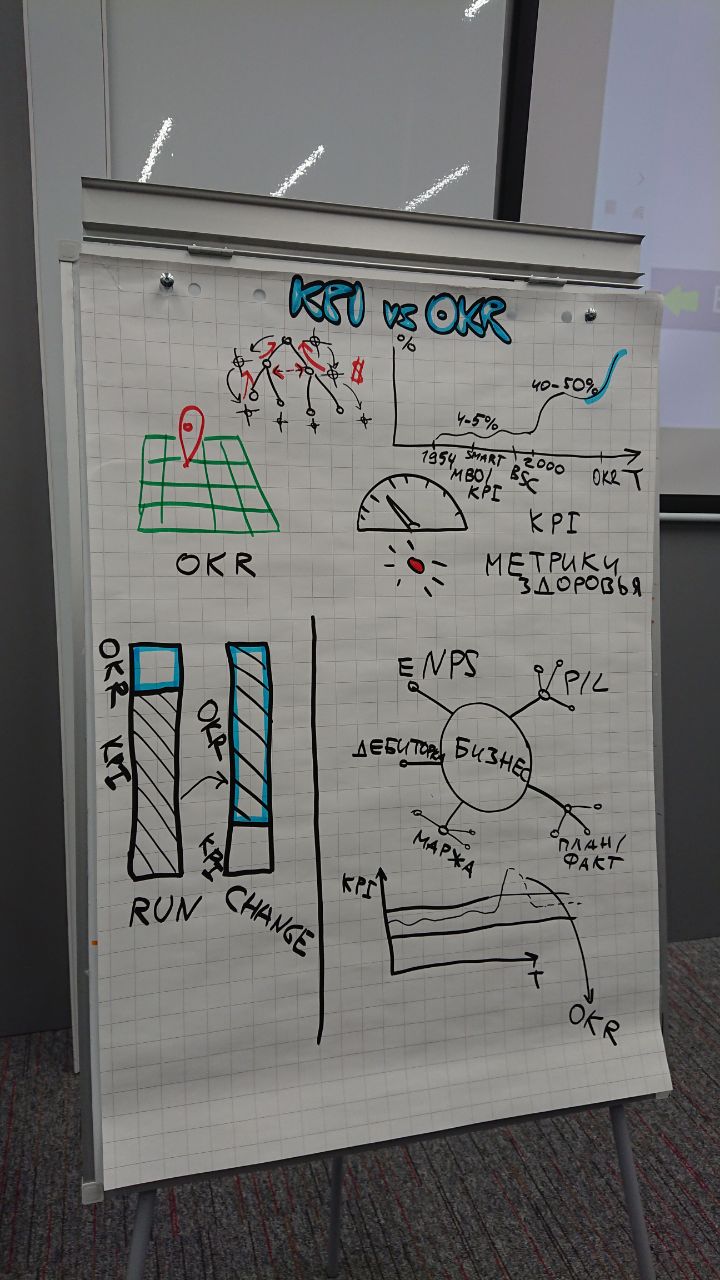 KPI vs OKR
%
40-50%
4-5%
1954 SMART 2000 OKR T
MBO/ BSC
KPI
KPI
OKR
МЕТРИКИ
ЗДОРОВЬЯ
OKR
KPI
OKR
KPI
RUN
CHANGE
ENPS
P/L
ДЕБИТОРКА
БИЗНЕС
МАРЖА
ПЛАН/
ФАКТ
KPI
T
OKR